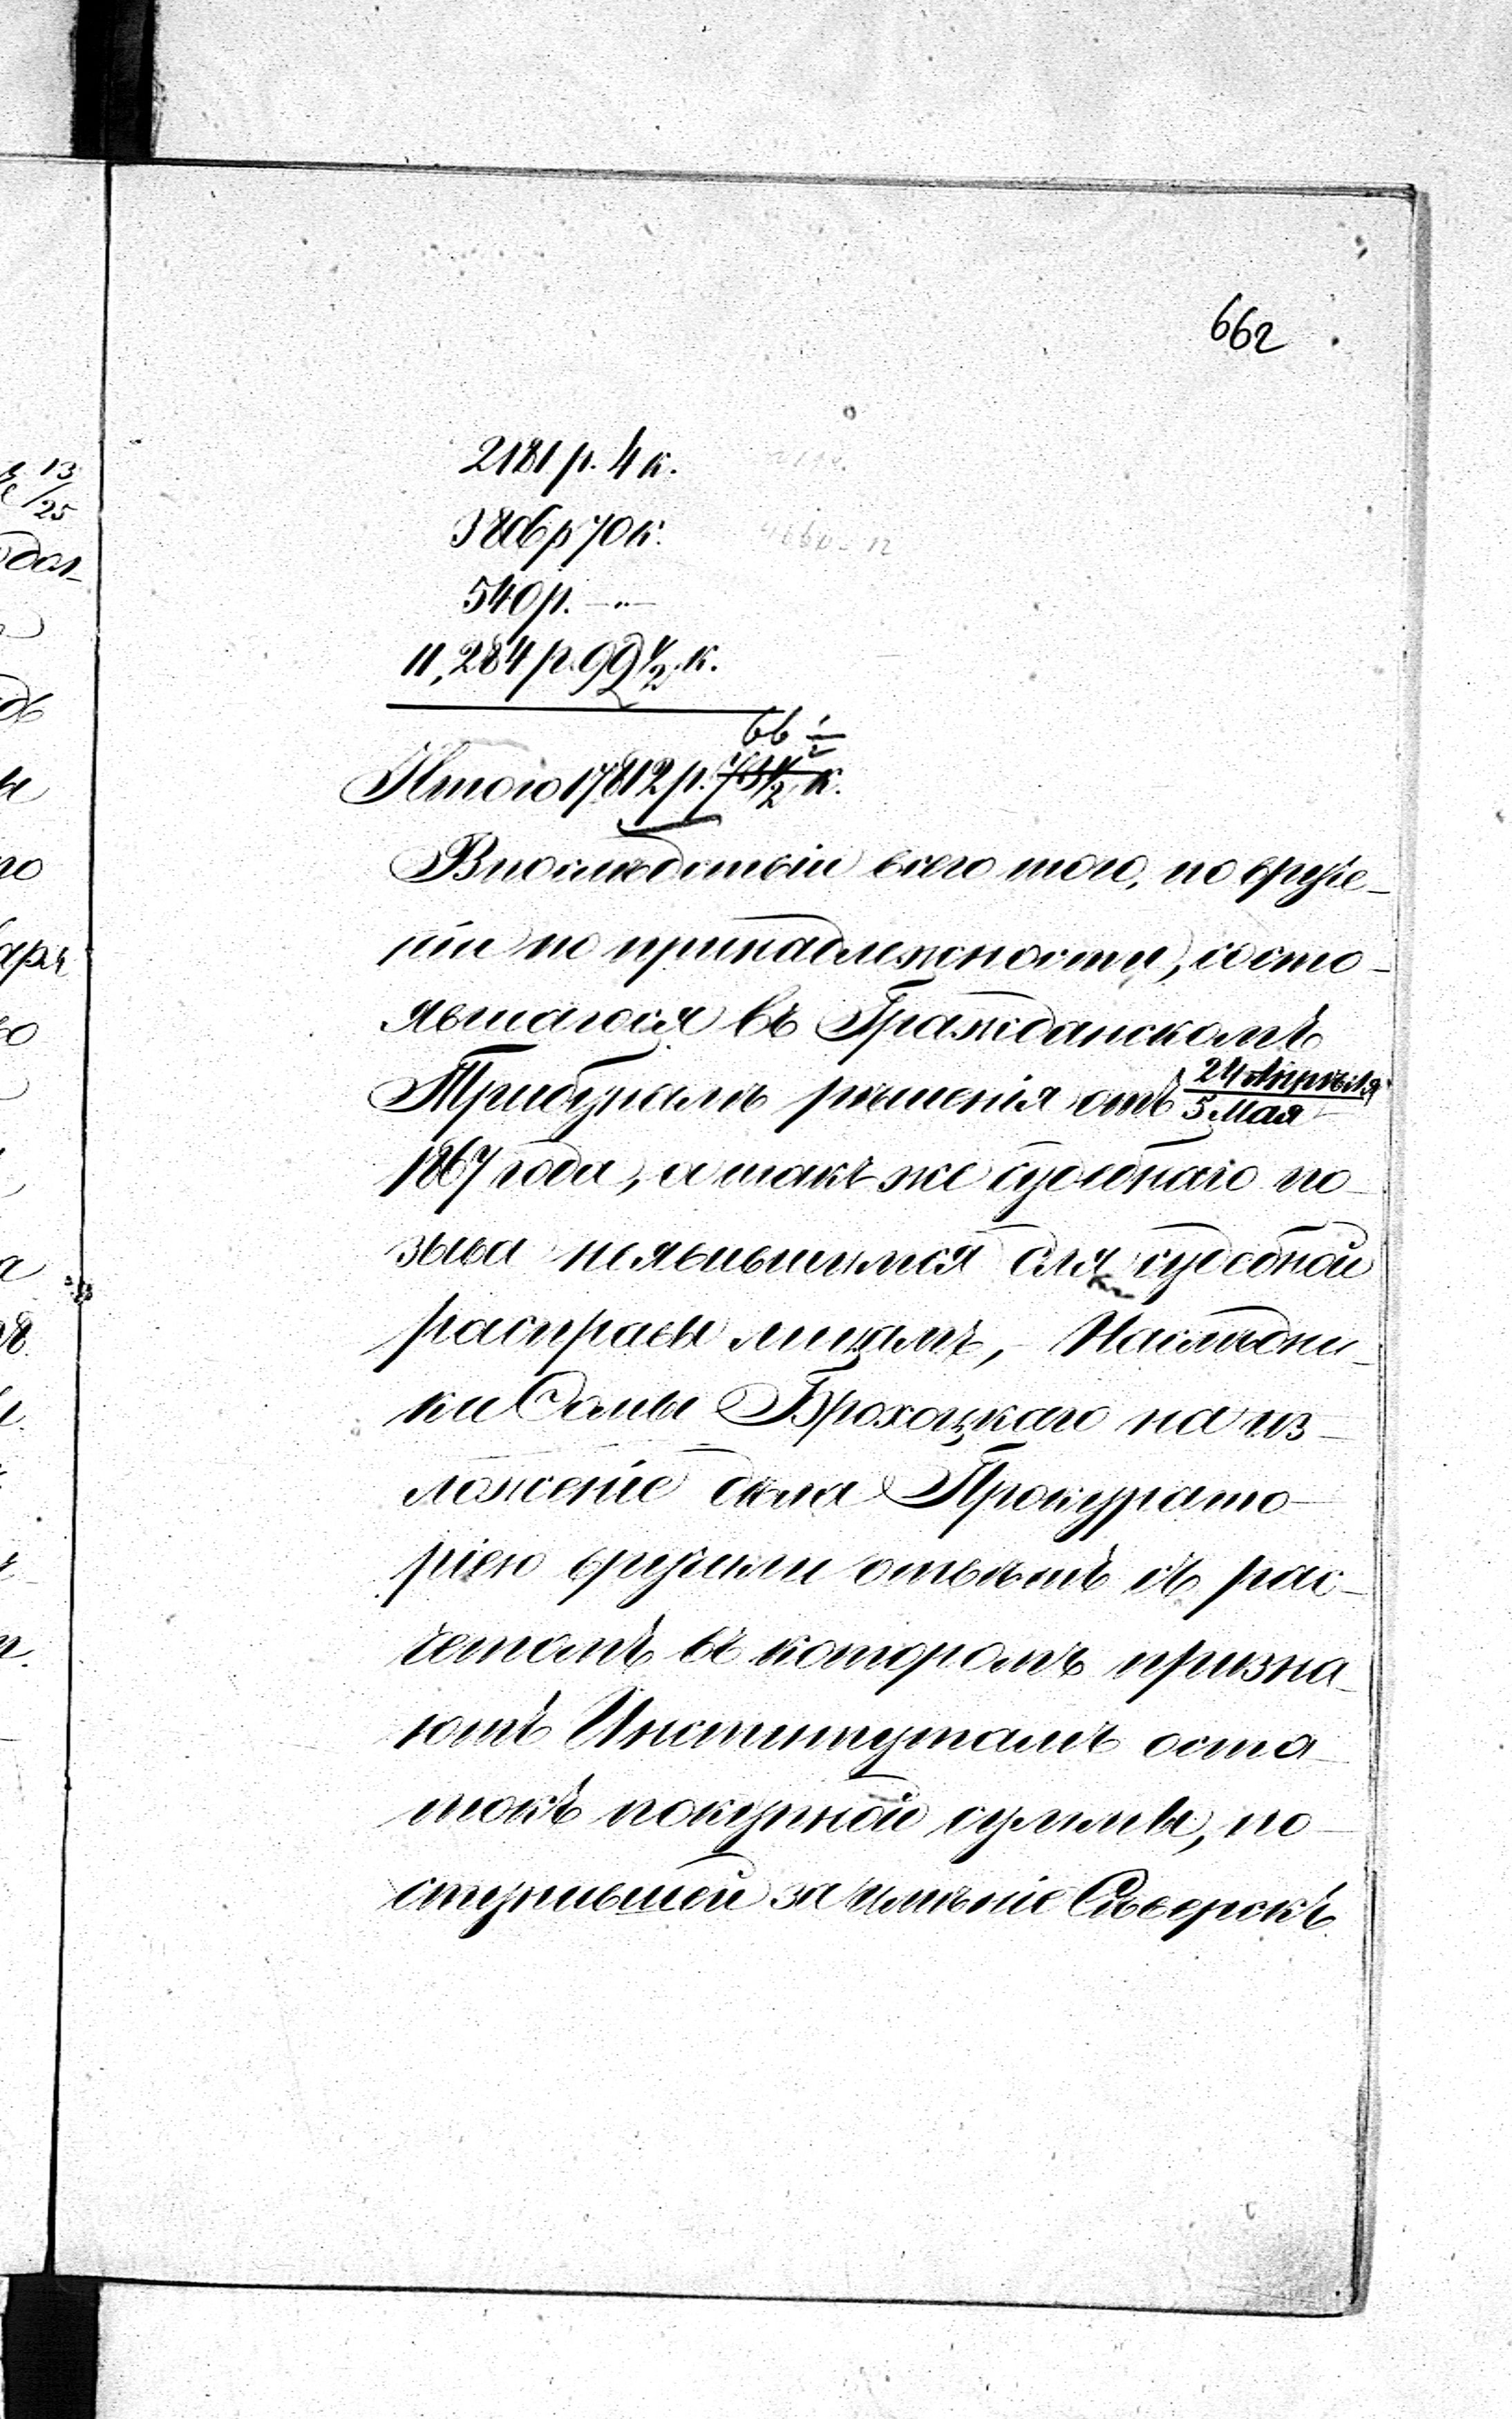 662
2181 р. 4 к.
3806 р 70 к.
540 р. —"—
11,284 р. 99 1/2 к.
66 1/2
Итого 17812 р. 73 1/2 к.
Впослѣдствіи всего того, по вруче-
ніи по принадлежности, состо-
явшагося въ Гражданскомъ
Трибуналѣ рѣшенія отъ 24 Апрѣля / 5 Мая
1867 года, а такъ же судебнаго по-
зыва неявившимся для судебной
расправы лицамъ, – Наслѣдни-
ки Сомы Брохоцкаго на из-
ложеніе дѣла Прокурато-
ріею вручили отвѣтъ съ рас-
четомъ въ которомъ призна-
ютъ Институтамъ оста-
токъ покупной суммы, по-
ступившей за имѣніе Сѣверскъ
13/25
дол-
го